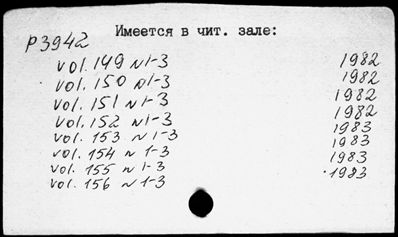 Имеется в чит. зале:
P3942
vol. 149 N1-3 1982
vol. 150 N1-3 1982
vol. 151 N1-3 1982
vol. 152 N1-3 1982
vol. 153 N1-3 1983
vol. 154 N 1-3 1983
vol. 155 N 1-3 1983
vol. 156 N 1-3 1983